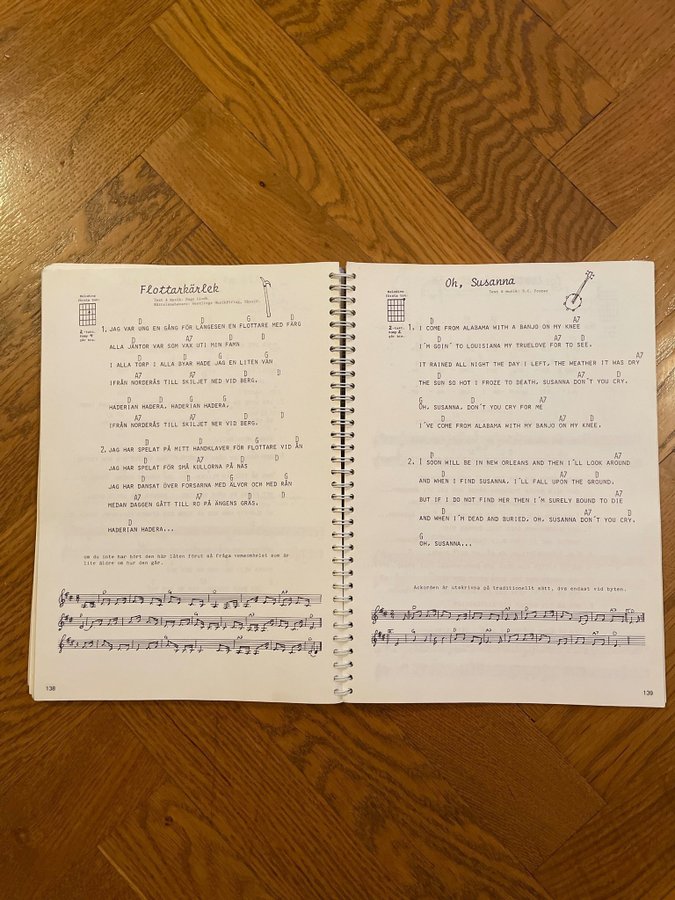 Flottarkärlek
Melodins
första ton:
2-takt
G
D D D G D
1. JAG VAR UNG EN GÅNG FÖR LÄNGESEN EN FLOTTARE MED FÄRG
D A7 D D
ALLA JÄNTOR VAR SOM VAX UTI MIN FAMN
D D G G
I ALLA TORP I ALLA BYAR HADE JAG EN LITEN VÄN
A7 A7 D D
IFRÅN NORDERÅS TILL SKILJET NED VID BERG.
D D G G
HADERIAN HADERA, HADERIAN HADERA,
A7 A7 D D
IFRÅN NORDERÅS TILL SKILJET NER VID BERG.
D D G D
2. JAG HAR SPELAT PÅ MITT HANDKLAVER FÖR FLOTTARE VID ÅN
D A7 D D
JAG HAR SPELAT FÖR SMÅ KULLORNA PÅ NÄS
D D G G
JAG HAR DANSAT ÖVER FORSARNA MED ÄLVOR OCH MED RÅN
A7 A7 D D
MEDAN DAGGEN GÅTT TILL RO PÅ ÄNGENS GRÄS.
D
HADERIAN HADERA...
Om du inte har hört den här låten förut så fråga vemsomhelst som är
lite äldre om hur den går.
138
Oh, Susanna
Text & musik: S.C. Foster
Melodins
första ton:
2-takt
D A7
1. I COME FROM ALABAMA WITH A BANJO ON MY KNEE
D A7 D
I´M GOIN´ TO LOUISIANA MY TRUELOVE FOR TO SEE.
A7
IT RAINED ALL NIGHT THE DAY I LEFT, THE WEATHER IT WAS DRY
D A7 D
THE SUN SO HOT I FROZE TO DEATH, SUSANNA DON´T YOU CRY.
G D A7
OH, SUSANNA, DON´T YOU CRY FOR ME
D A7 D
I´VE COME FROM ALABAMA WITH MY BANJO ON MY KNEE.
D A7
2. I SOON WILL BE IN NEW ORLEANS AND THEN I´LL LOOK AROUND
D A7 D
AND WHEN I FIND SUSANNA, I´LL FALL UPON THE GROUND.
A7
BUT IF I DO NOT FIND HER THEN I´M SURELY BOUND TO DIE
D A7 D
AND WHEN I´M DEAD AND BURIED, OH, SUSANNA DON´T YOU CRY.
G
OH, SUSANNA...
Ackorden är utskrivna på traditionellt sätt, dvs endast vid byten.
139